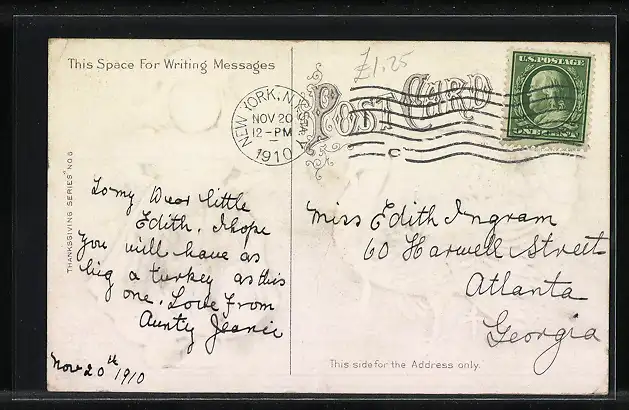 This Space For Writing Messages
£1.25
POST CARD
U.S. POSTAGE
ONE CENT
NEW YORK, N.Y.
NOV 20
12-PM
1910
C
THANKSGIVING SERIES No 6
To my Dear little
Edith. I hope
you will have as
big a turkey as this
one. Love From
Aunty Jeanie
Nov 20th 1910
Miss Edith Ingram
60 Harwell Street
Atlanta
Georgia
This side for the Address only.